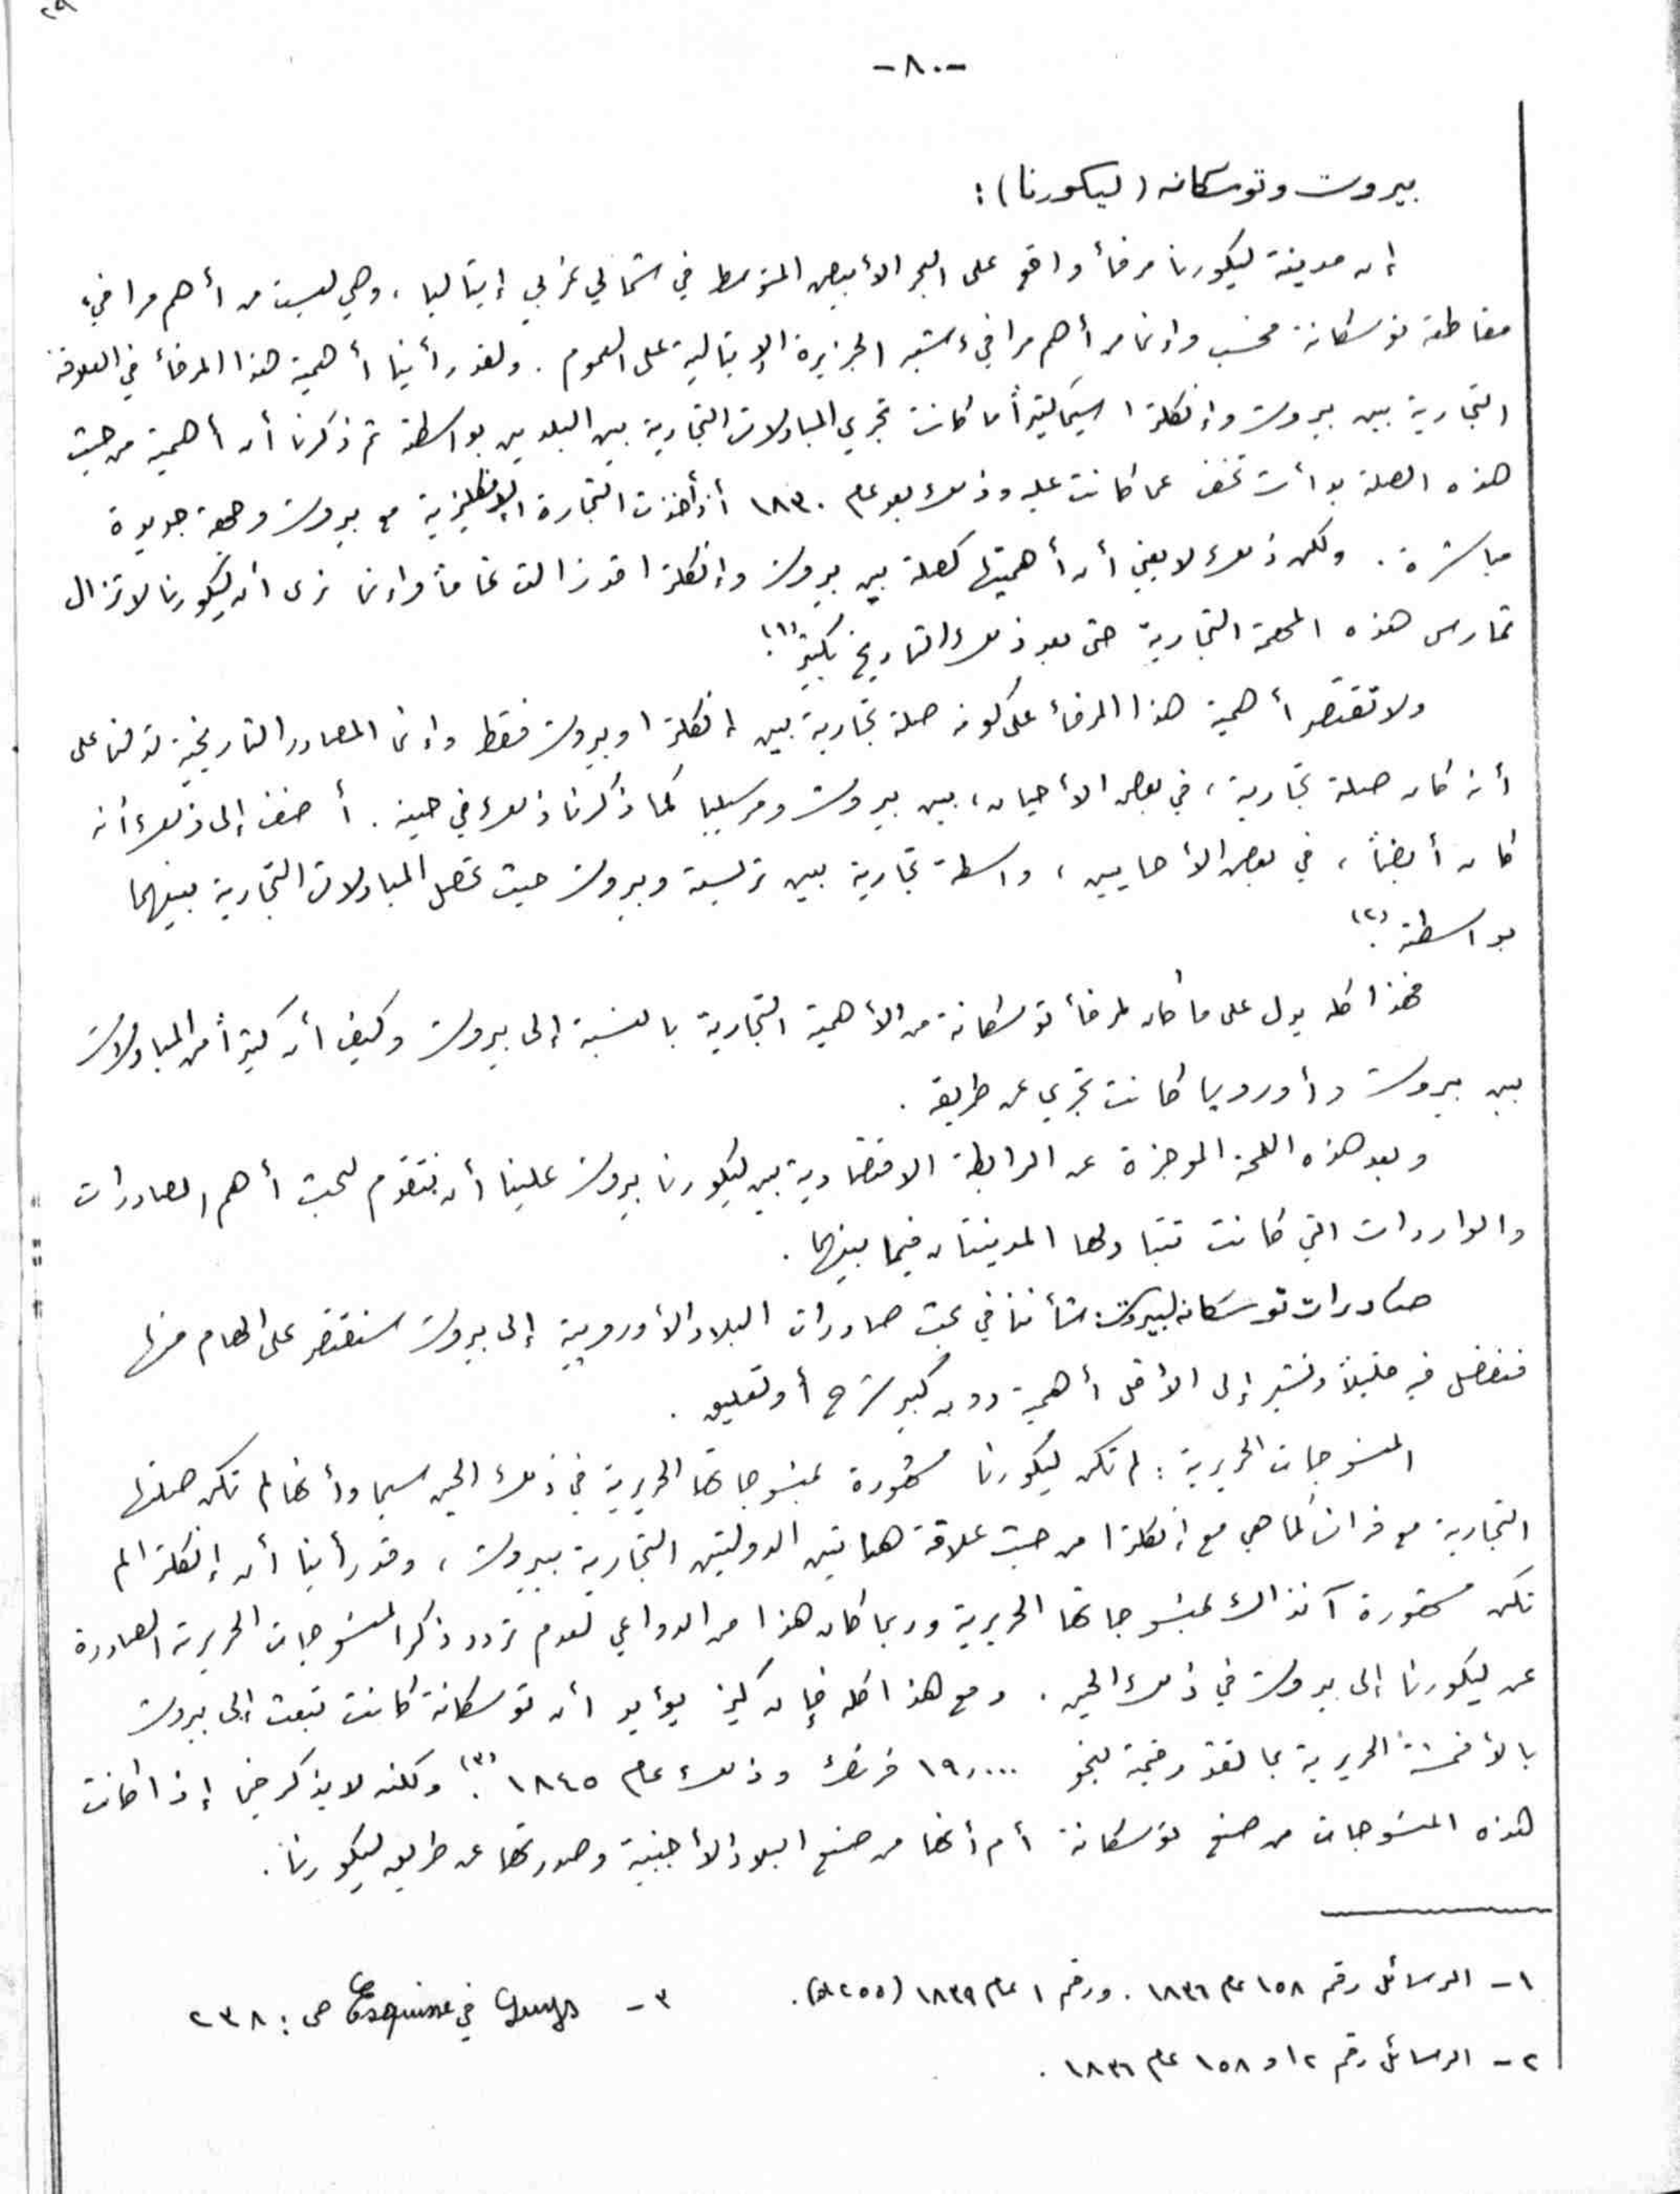 ٢٩
-٨٠-
بيروت وتوسكانه (ليكورنا):
إن مدينة ليكورنا مرفأ واقع على البحر الأبيض المتوسط في شمالي غربي إيتاليا، وهي ليست من أهم مرافيء
مقاطعة توسكانة فحسب وإنما من أهم مرافيء شبه الجزيرة الإيتالية على العموم. ولقد رأينا أهمية هذا المرفأ في العلاقة
التجارية بين بيروت وإنكلترا سيما كثيراً ما كانت تجري المبادلات التجارية بين البلدين بواسطته ثم ذكرنا أن أهميته من حيث
هذه الصلة بدأت تخف عما كانت عليه وذلك بعد عام ١٨٣٠ أذ أخذت التجارة الإنكليزية مع بيروت وجهة جديدة
مباشرة. ولكن ذلك لا يعني أن أهميتها كصلة بين بيروت وإنكلترا قد زالت تماماً وإنما نرى أن ليكورنا لا تزال
تمارس هذه المهمة التجارية حتى بعد ذلك التاريخ بكثير (١).
ولا تقتصر أهمية هذا المرفأ على كونه صلة تجارية بين إنكلترا وبيروت فقط وإنما المصادر التاريخية تدلنا على
أنه كان صلة تجارية، في بعض الأحيان، بين بيروت ومرسيليا كما ذكرنا ذلك في حينه. أضف إلى ذلك أنه
كان أيضاً، في بعض الأحايين، واسطة تجارية بين تريستة وبيروت حيث تحصل المبادلات التجارية بينهما
بواسطته (٢).
فهذا كله يدل على ما كان لمرفأ توسكانة من الأهمية التجارية بالنسبة إلى بيروت وكيف أن كثيراً من المبادلات
بين بيروت وأوروبا كانت تجري عن طريقه.
وبعد هذه اللمحة الموجزة عن الرابطة الاقتصادية بين ليكورنا بيروت علينا أن نتقدم لبحث أهم الصادرات
والواردات التي كانت تتبادلها المدينتان فيما بينهما.
صادرات توسكانه لبيروت: شأننا في بحث صادرات البلاد الأوروبية إلى بيروت سنقتصر على الهام منها
فنفصل فيه قليلاً ونشير إلى الأقل أهمية دون كبير شرح أو تعليق.
المنسوجات الحريرية: لم تكن ليكورنا مشهورة بمنسوجاتها الحريرية في ذلك الحين سيما وأنها لم تكن صلتها
التجارية مع فرانسا كما هي مع إنكلترا من حيث علاقة هاتين الدولتين التجارية ببيروت، وقد رأينا أن إنكلترا لم
تكن مشهورة آنذاك بمنسوجاتها الحريرية وربما كان هذا من الدواعي لعدم تردد ذكر المنسوجات الحريرية الصادرة
عن ليكورنا إلى بيروت في ذلك الحين. ومع هذا كله فإن كيز يؤيد أن توسكانة كانت تبعث إلى بيروت
بالأقمشة الحريرية بما تقدر قيمته بنحو ١٩,٠٠٠ فرنك وذلك عام ١٨٤٥ (٣). ولكنه لا يذكر فيما إذا كانت
هذه المنسوجات من صنع توسكانة أم أنها من صنع البلاد الأجنبية وصدرتها عن طريق ليكورنا.
١- الرسائل رقم ١٥٨ عام ١٨٣٦. ورقم ١ عام ١٨٣٩ (٢٥٥).
٢- الرسائل رقم ١٢ و ١٥٨ عام ١٨٣٦.
٣- Guys في Esquisse ص: ٢٣٨